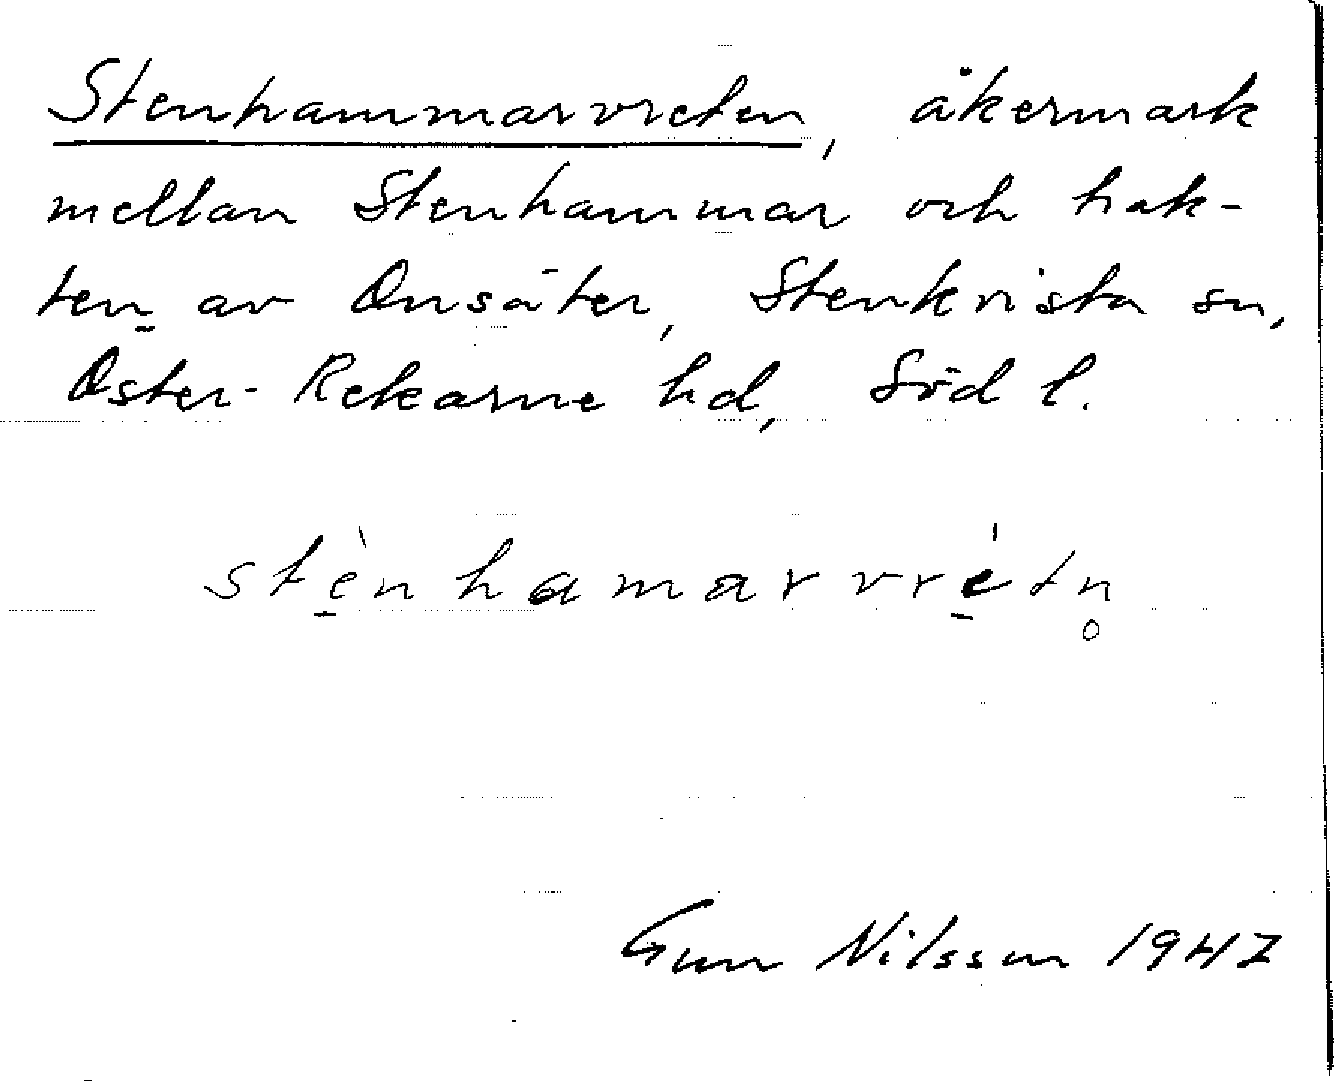 Stenhammarvreten, åkermark
mellan Stenhammar och trak-
ten av Onsäter, Stenkvista sn,
Öster-Rekarne hd, Söd l.
stè̠nhamarvré̠tn̥
Gun Nilsson 1947